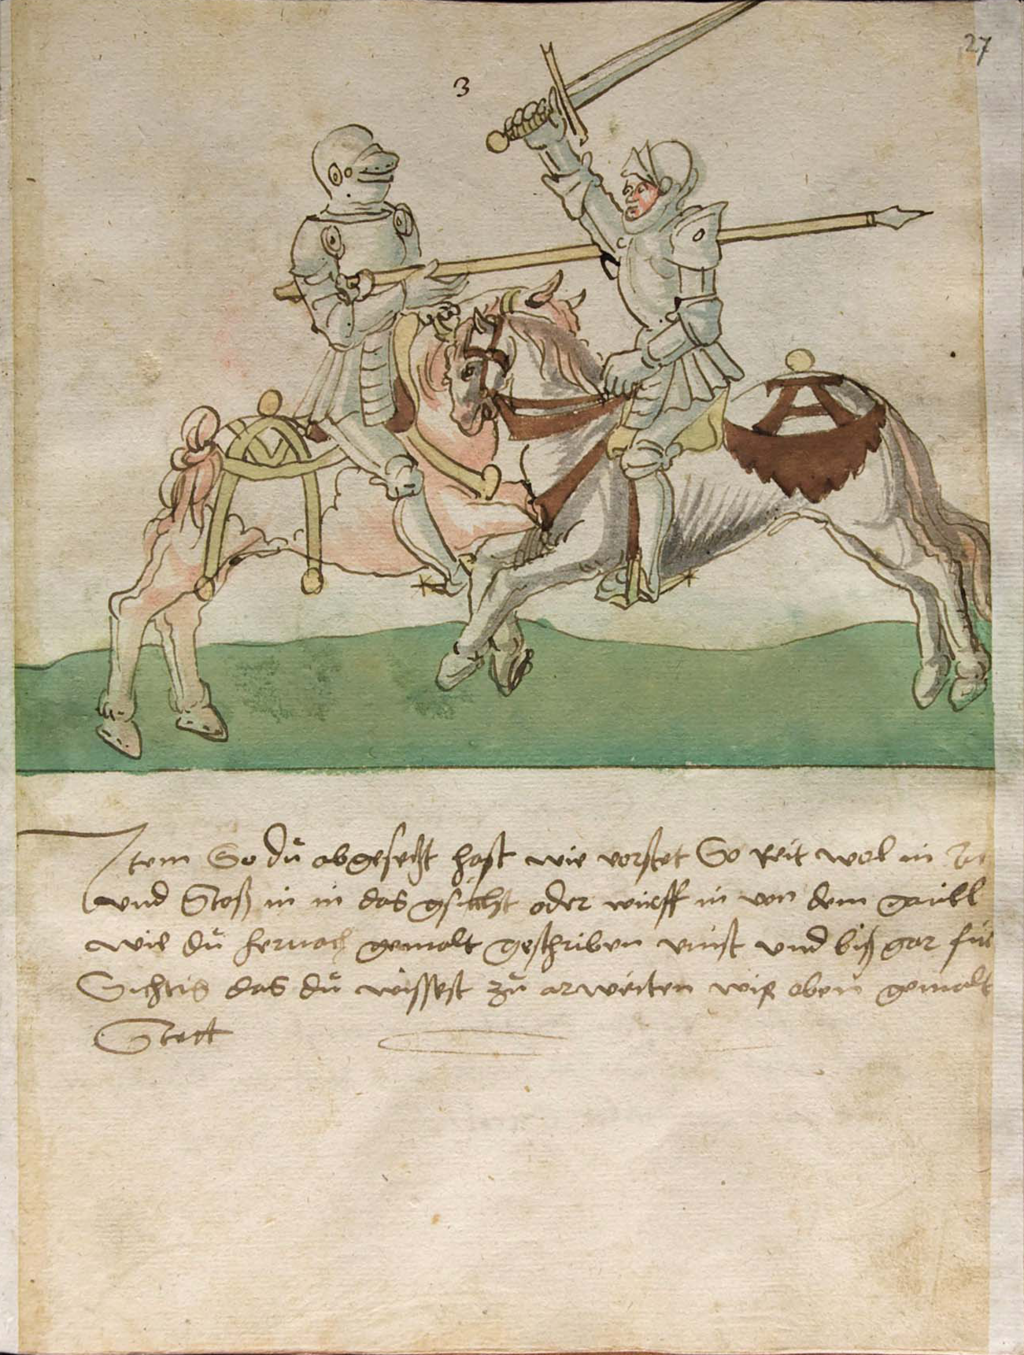 27
3
Item So du abgesetzt hast wie vorstet So Reit wol in
und Stoß in in das gsicht oder würff in von dem gaull
wie du hernach gemalt geschriben vinst und biß gar für
Sichtig das du wissest zu arweiten wie oben gemalt
Stett